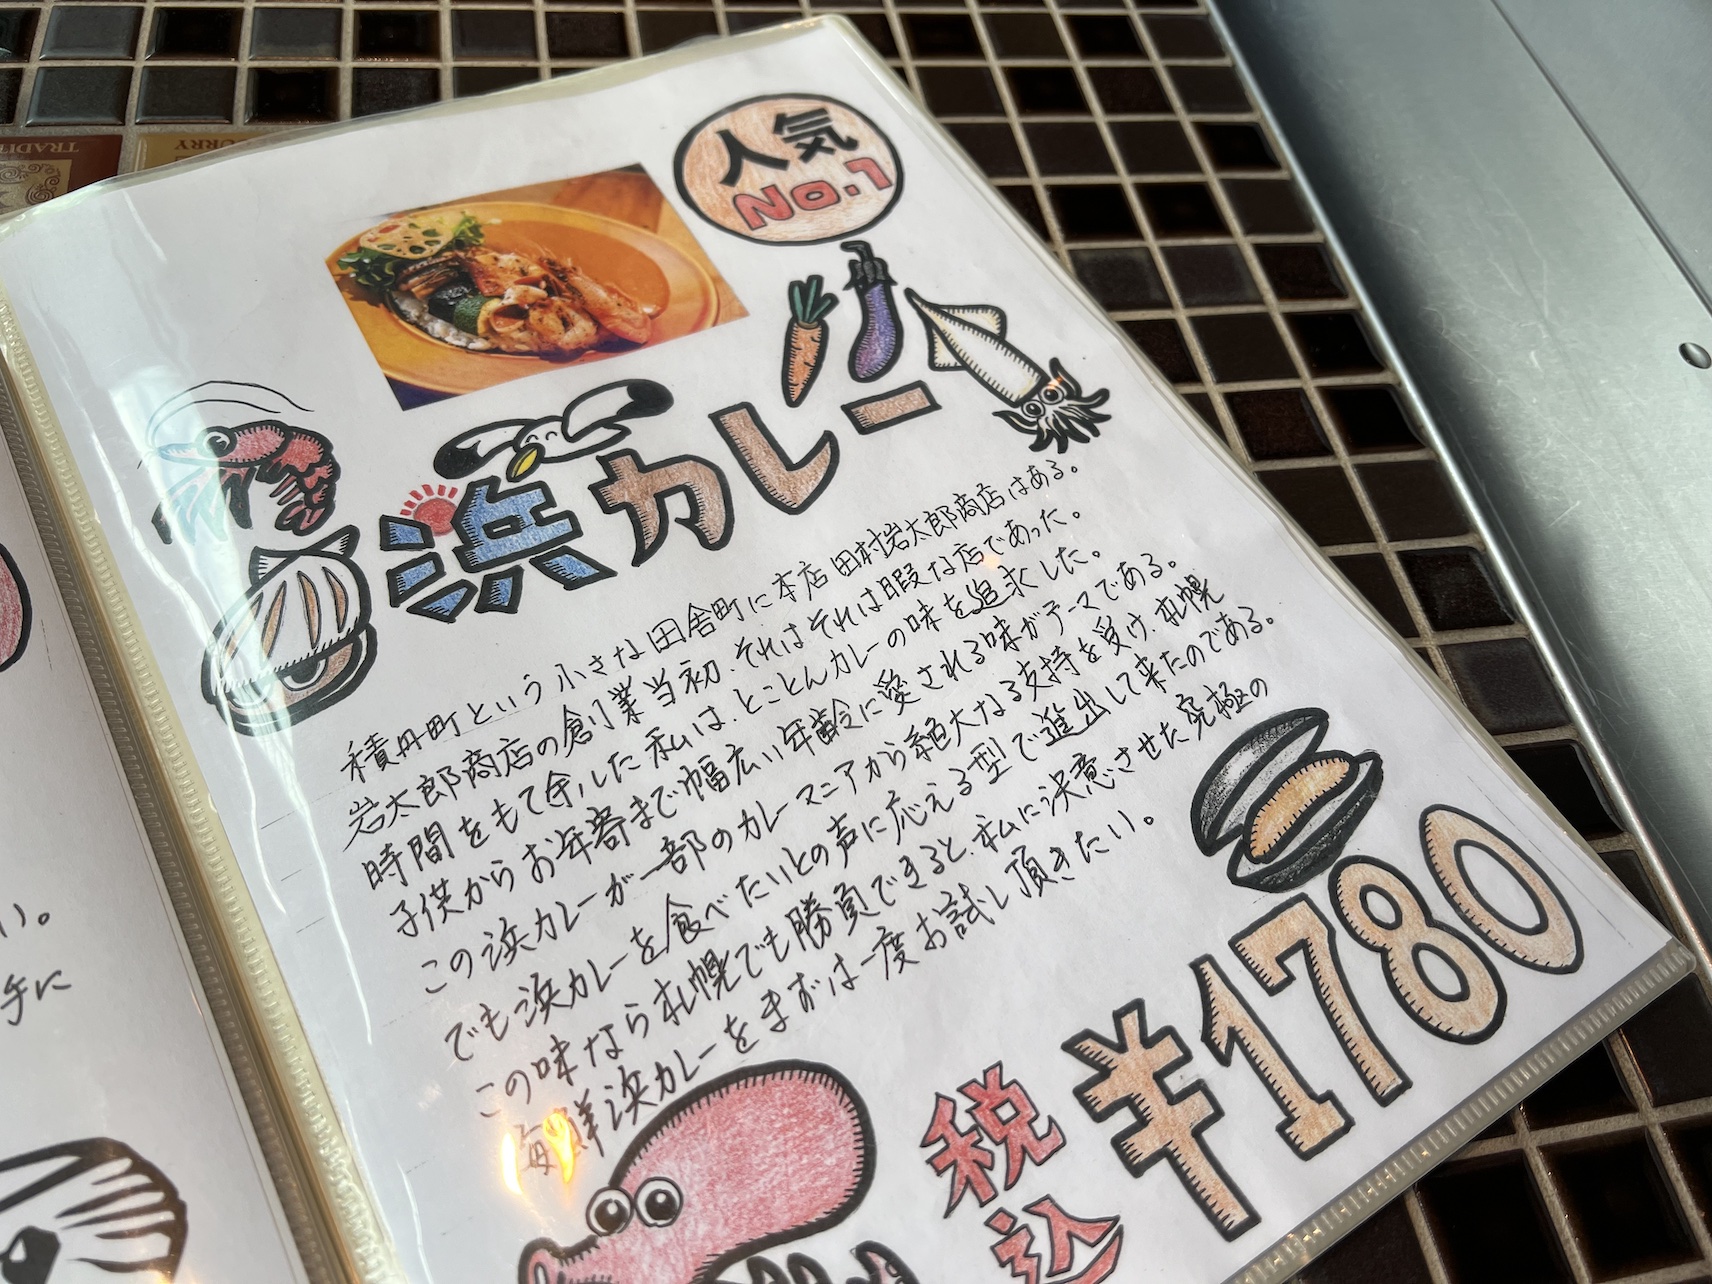 TRADIT
CURRY
人気
No.1
浜カレー
積丹町という小さな田舎町に本店田村岩太郎商店はある。
岩太郎商店の創業当初、それはそれは暇な店であった。
時間をもて余した私は、とことんカレーの味を追求した。
子供からお年寄まで幅広い年齢に愛される味がテーマである。
この浜カレーが一部のカレーマニアから絶大なる支持を受け、札幌
でも浜カレーを食べたいとの声に応える型で進出して来たのである。
この味なら札幌でも勝負できると、私に決意させた究極の
海鮮浜カレーをまずは一度お試し頂きたい。
税込
¥1780
い。
手に